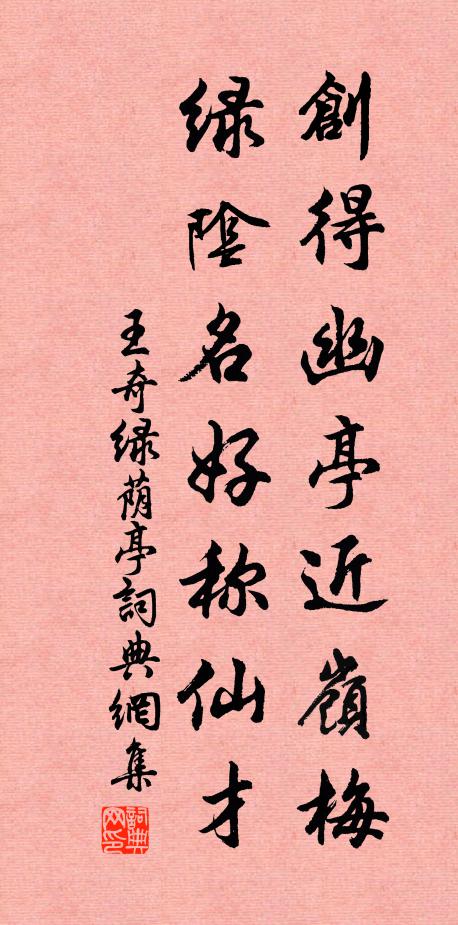 創得幽亭近嶺梅
綠陰名好称仙才
王奇綠荫亭詞典網集
詞典网印